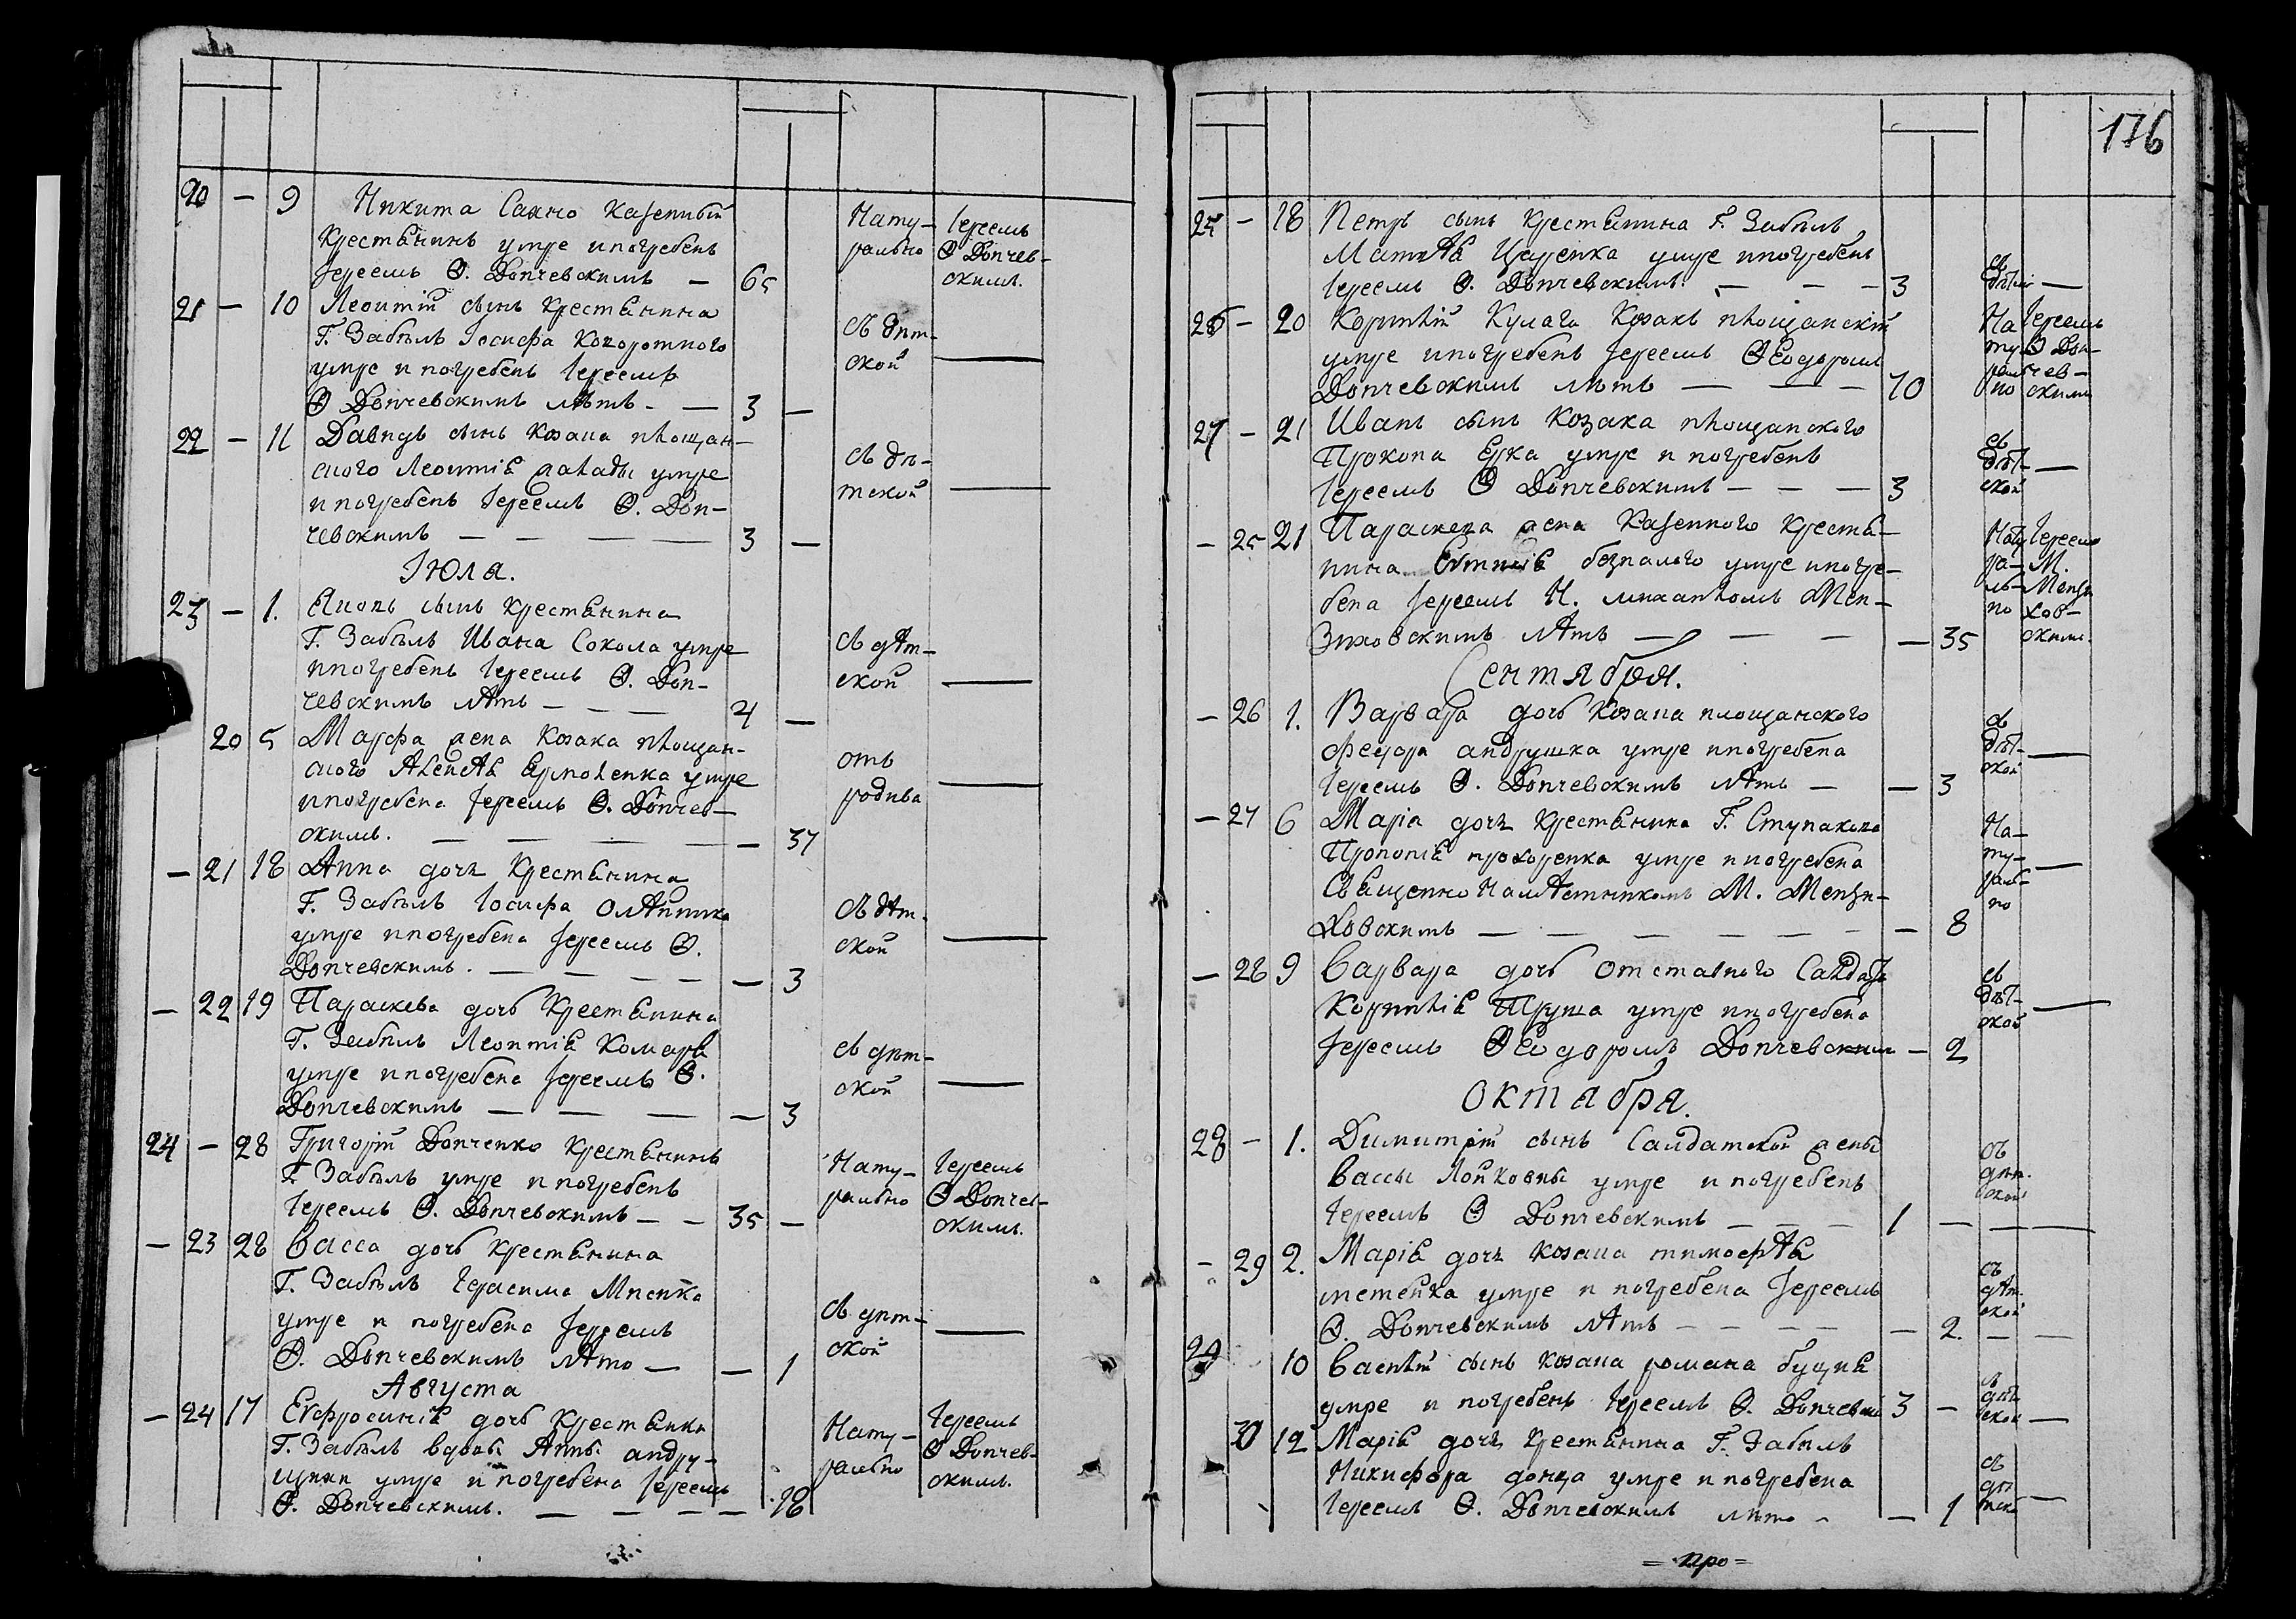 176
20 — 9 Никита Сахно Казенный
Крестьянинъ умре и погребенъ
Іереемъ Ѳ. Дончевскимъ — 65
Нату-
рально
Іереемъ
Ѳ Дончев-
скимъ.
21 — 10 Леонтій сынъ Крестьянина
Г. Забѣлъ Іосифа
умре и погребенъ Іереемъ
Ѳ Дончевскимъ лѣтъ — 3 —
Съ дѣт-
ской —
22 — 11 Давидъ сынъ Козака площан-
ского Леонтія умре
и погребенъ Іереемъ Ѳ. Дон-
чевскимъ — — — 3 —
Съ дѣ-
тской —
Іюля.
23 — 1. сынъ Крестьянина
Г. Забѣлъ Ивана Сокола умре
и погребенъ Іереемъ Ѳ. Дон-
чевскимъ лѣтъ — — — 4 —
Съ дѣт-
ской —
20 5 Марфа жена Козака площан-
ского Алексѣя Ермоленка умре
и погребена Іереемъ Ѳ. Дончев-
скимъ. — — — — 37
отъ
родива —
— 21 18 Анна дочь Крестьянина
Г. Забѣлъ Іосифа Олѣйника
умре и погребена Іереемъ Ѳ.
Дончевскимъ. — — — — 3
Съ дѣт-
ской —
— 22 19 Параскева дочь Крестьянина
Г. Забѣлъ Леонтія Комара
умре и погребена Іереемъ Ѳ.
Дончевскимъ — — — — 3
Съ дѣт-
ской —
24 — 28 Григорій Донченко Крестьянинъ
Г. Забѣлъ умре и погребенъ
Іереемъ Ѳ. Дончевскимъ — — 35 —
Нату-
рально
Іереемъ
Ѳ Дончев-
скимъ.
— 23 28 Васса дочь Крестьянина
Г. Забѣлъ Герасима
умре и погребена Іереемъ
Ѳ. Дончевскимъ лѣто — — 1
Съ дѣт-
ской —
Августа
— 24 17 Евфросинія дочь Крестьянки
Г. Забѣлъ вдовы Анны андру-
щихи умре и погребена Іереемъ
Ѳ. Дончевскимъ. — — — — 18
Нату-
рально
Іереемъ
Ѳ Дончев-
скимъ.
25 — 18 Петръ сынъ Крестьянина Г. Забѣлъ
Матвѣя Царенка умре и погребенъ
Іереемъ Ѳ. Дончевскимъ. — — — 3
26 — 20 Корнилій Кулага Козакъ площанскій
умре и погребенъ Іереемъ Ѳеодоромъ
Дончевскимъ лѣтъ — — — 70
На
ту-
раль
но
Іереемъ
Ѳ Дон-
чев-
скимъ
27 — 21 Иванъ сынъ Козака площанского
Прокопа Ерка умре и погребенъ
Іереемъ Ѳ Дончевскимъ — — — 3
съ
дѣт-
ской —
— 25 21 Параскева жена Казенного Крестья-
нина безпалого умре и погре-
бена Іереемъ Н. михаиломъ Мен-
зиховскимъ лѣтъ — — — — 35
Нату
ра-
ль-
но
Іереемъ
М.
Мензи
хов-
скимъ.
Сентября.
— 26 1. Варвара дочь Козака площанского
Федора андрушка умре и погребена
Іереемъ Ѳ. Дончевскимъ лѣтъ — — 3
съ
дѣт-
ской —
— 27 6 Марія дочь Крестьянина Г. Ступакова
Прокопія прохоренка умре и погребена
Священно Намѣстникомъ М. Мензи-
ховскимъ — — — — — — 8
На-
ту-
раль-
но —
— 28 9 Варвара дочь отставного Салдата
Корнилія Труша умре и погребена
Іереемъ Ѳеодоромъ Дончевскимъ — 2
съ
дѣт-
ской —
Октября.
28 — 1. Димитрій сынъ Салдатской жены
Вассы умре и погребенъ
Іереемъ Ѳ Дончевскимъ — — — 1 — — —
съ
дѣт-
ской
— 29 2. Марія дочь Козака тимофѣя
умре и погребена Іереемъ
Ѳ. Дончевскимъ лѣтъ — — — — 2. — —
съ
дѣт-
ской
29 10 Василій сынъ Козака романа
умре и погребенъ Іереемъ Ѳ. Дончевски 3 —
съ
дѣт
ской —
30 12 Марія дочь Крестьянина Г. Забѣлъ
Никифора донца умре и погребена
Іереемъ Ѳ. Дончевскимъ лѣто — — 1
съ
дѣ
тско —
= про =